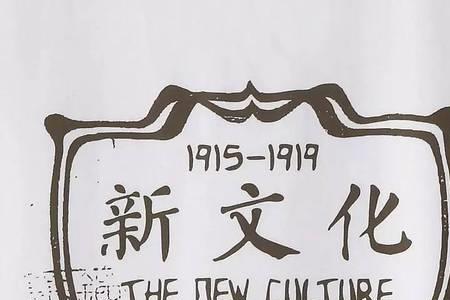 1915-1919
新文化
THE NEW CULTURE